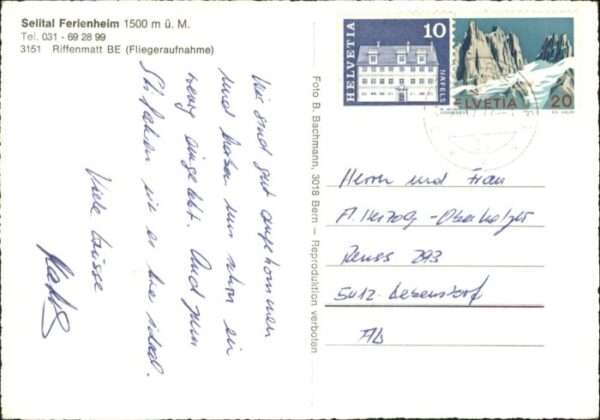 Selital Ferienheim 1500 m ü. M.
Tel. 031 - 69 28 99
3151 Riffenmatt BE (Fliegeraufnahme)
HELVETIA
10
NÄFELS
HELVETIA
20
Foto B. Bachmann, 3018 Bern — Reproduktion verboten
Wir sind gut angekommen
und haben uns schon ein
wenig eingelebt. Und zum
Skifahren ist es hier ideal.
Viele Grüsse
Herrn und Frau
A. Herzog-Oberholzer
Reuss 293
5412 Gebenstorf
AG